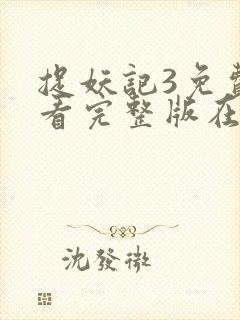 捉妖記3免費
看完整版在
沈發微